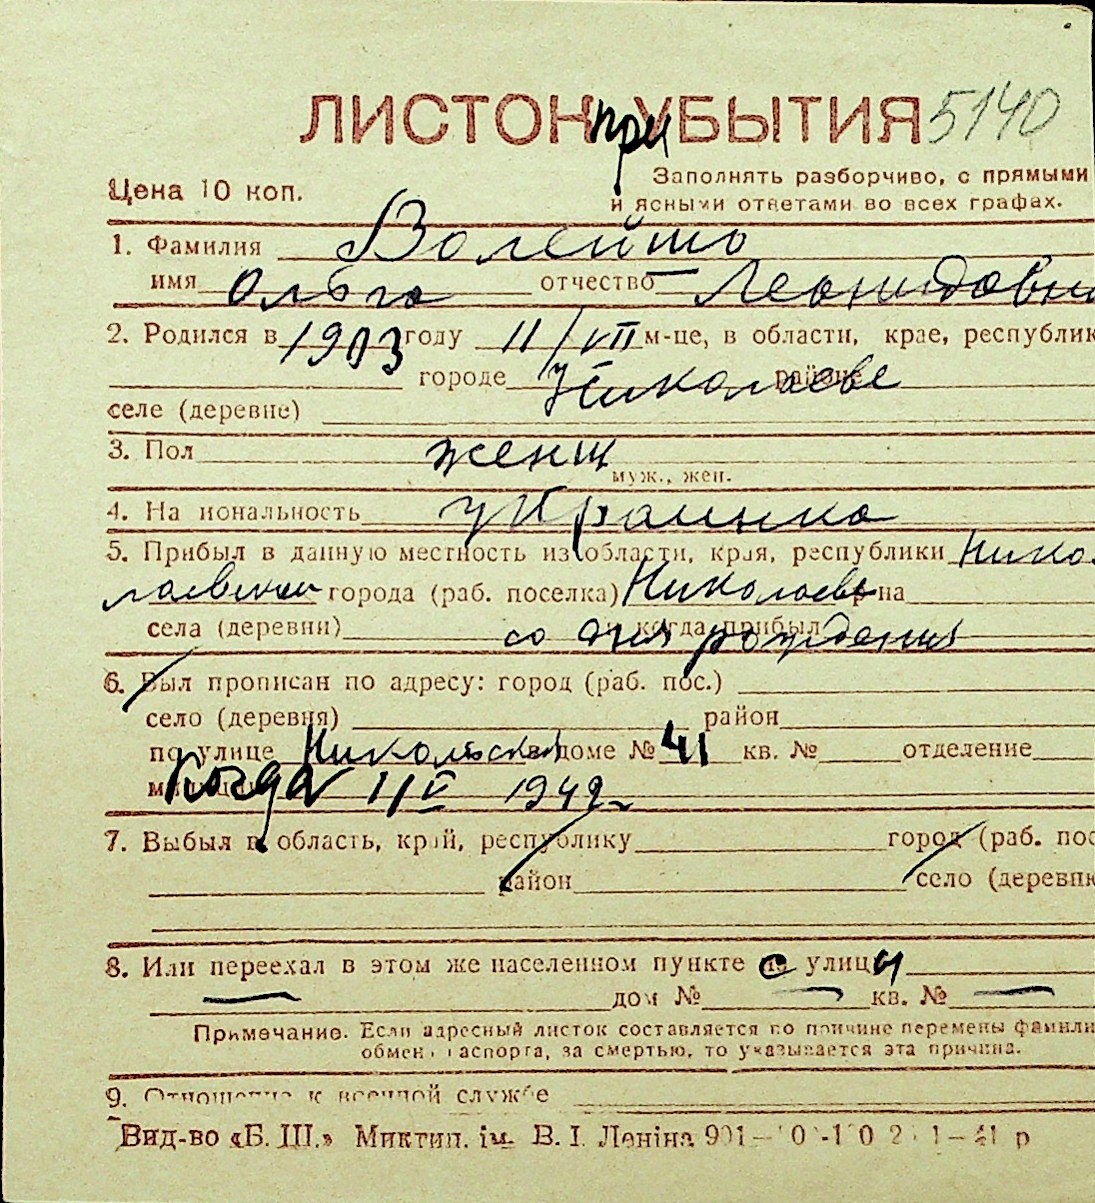 ЛИСТОК при УБЫТИЯ 5140
Цена 10 коп.
Заполнять разборчиво, с прямыми
и ясными ответами во всех графах.
1. Фамилия Волейшо
имя Ольга отчество Леонидовн
2. Родился в 1903 году 11/VII м-це, в области, крае, республик
городе Николаеве районе
селе (деревне)
3. Пол женщ
муж., жен.
4. На иональность украинка
5. Прибыл в данную местность из области, края, республики Нико
лаевской города (раб. поселка) Николаева на
села (деревни) и когда прибыл со дня рождения
6. Был прописан по адресу: город (раб. пос.)
село (деревня) район
по улице Никольской в доме № 41 кв. № отделение
Когда 1/V 1942
7. Выбыл в область, край, республику город (раб. пос
район село (деревню
8. Или переехал в этом же населенном пункте с улицы
дом № кв. №
Примечание. Если адресный листок составляется по причине перемены фамили
обмен паспорта, за смертью, то указывается эта причина.
9. Отношение к военной службе
Вид-во «Б. Ш.» Миктип. ім. В. І. Леніна